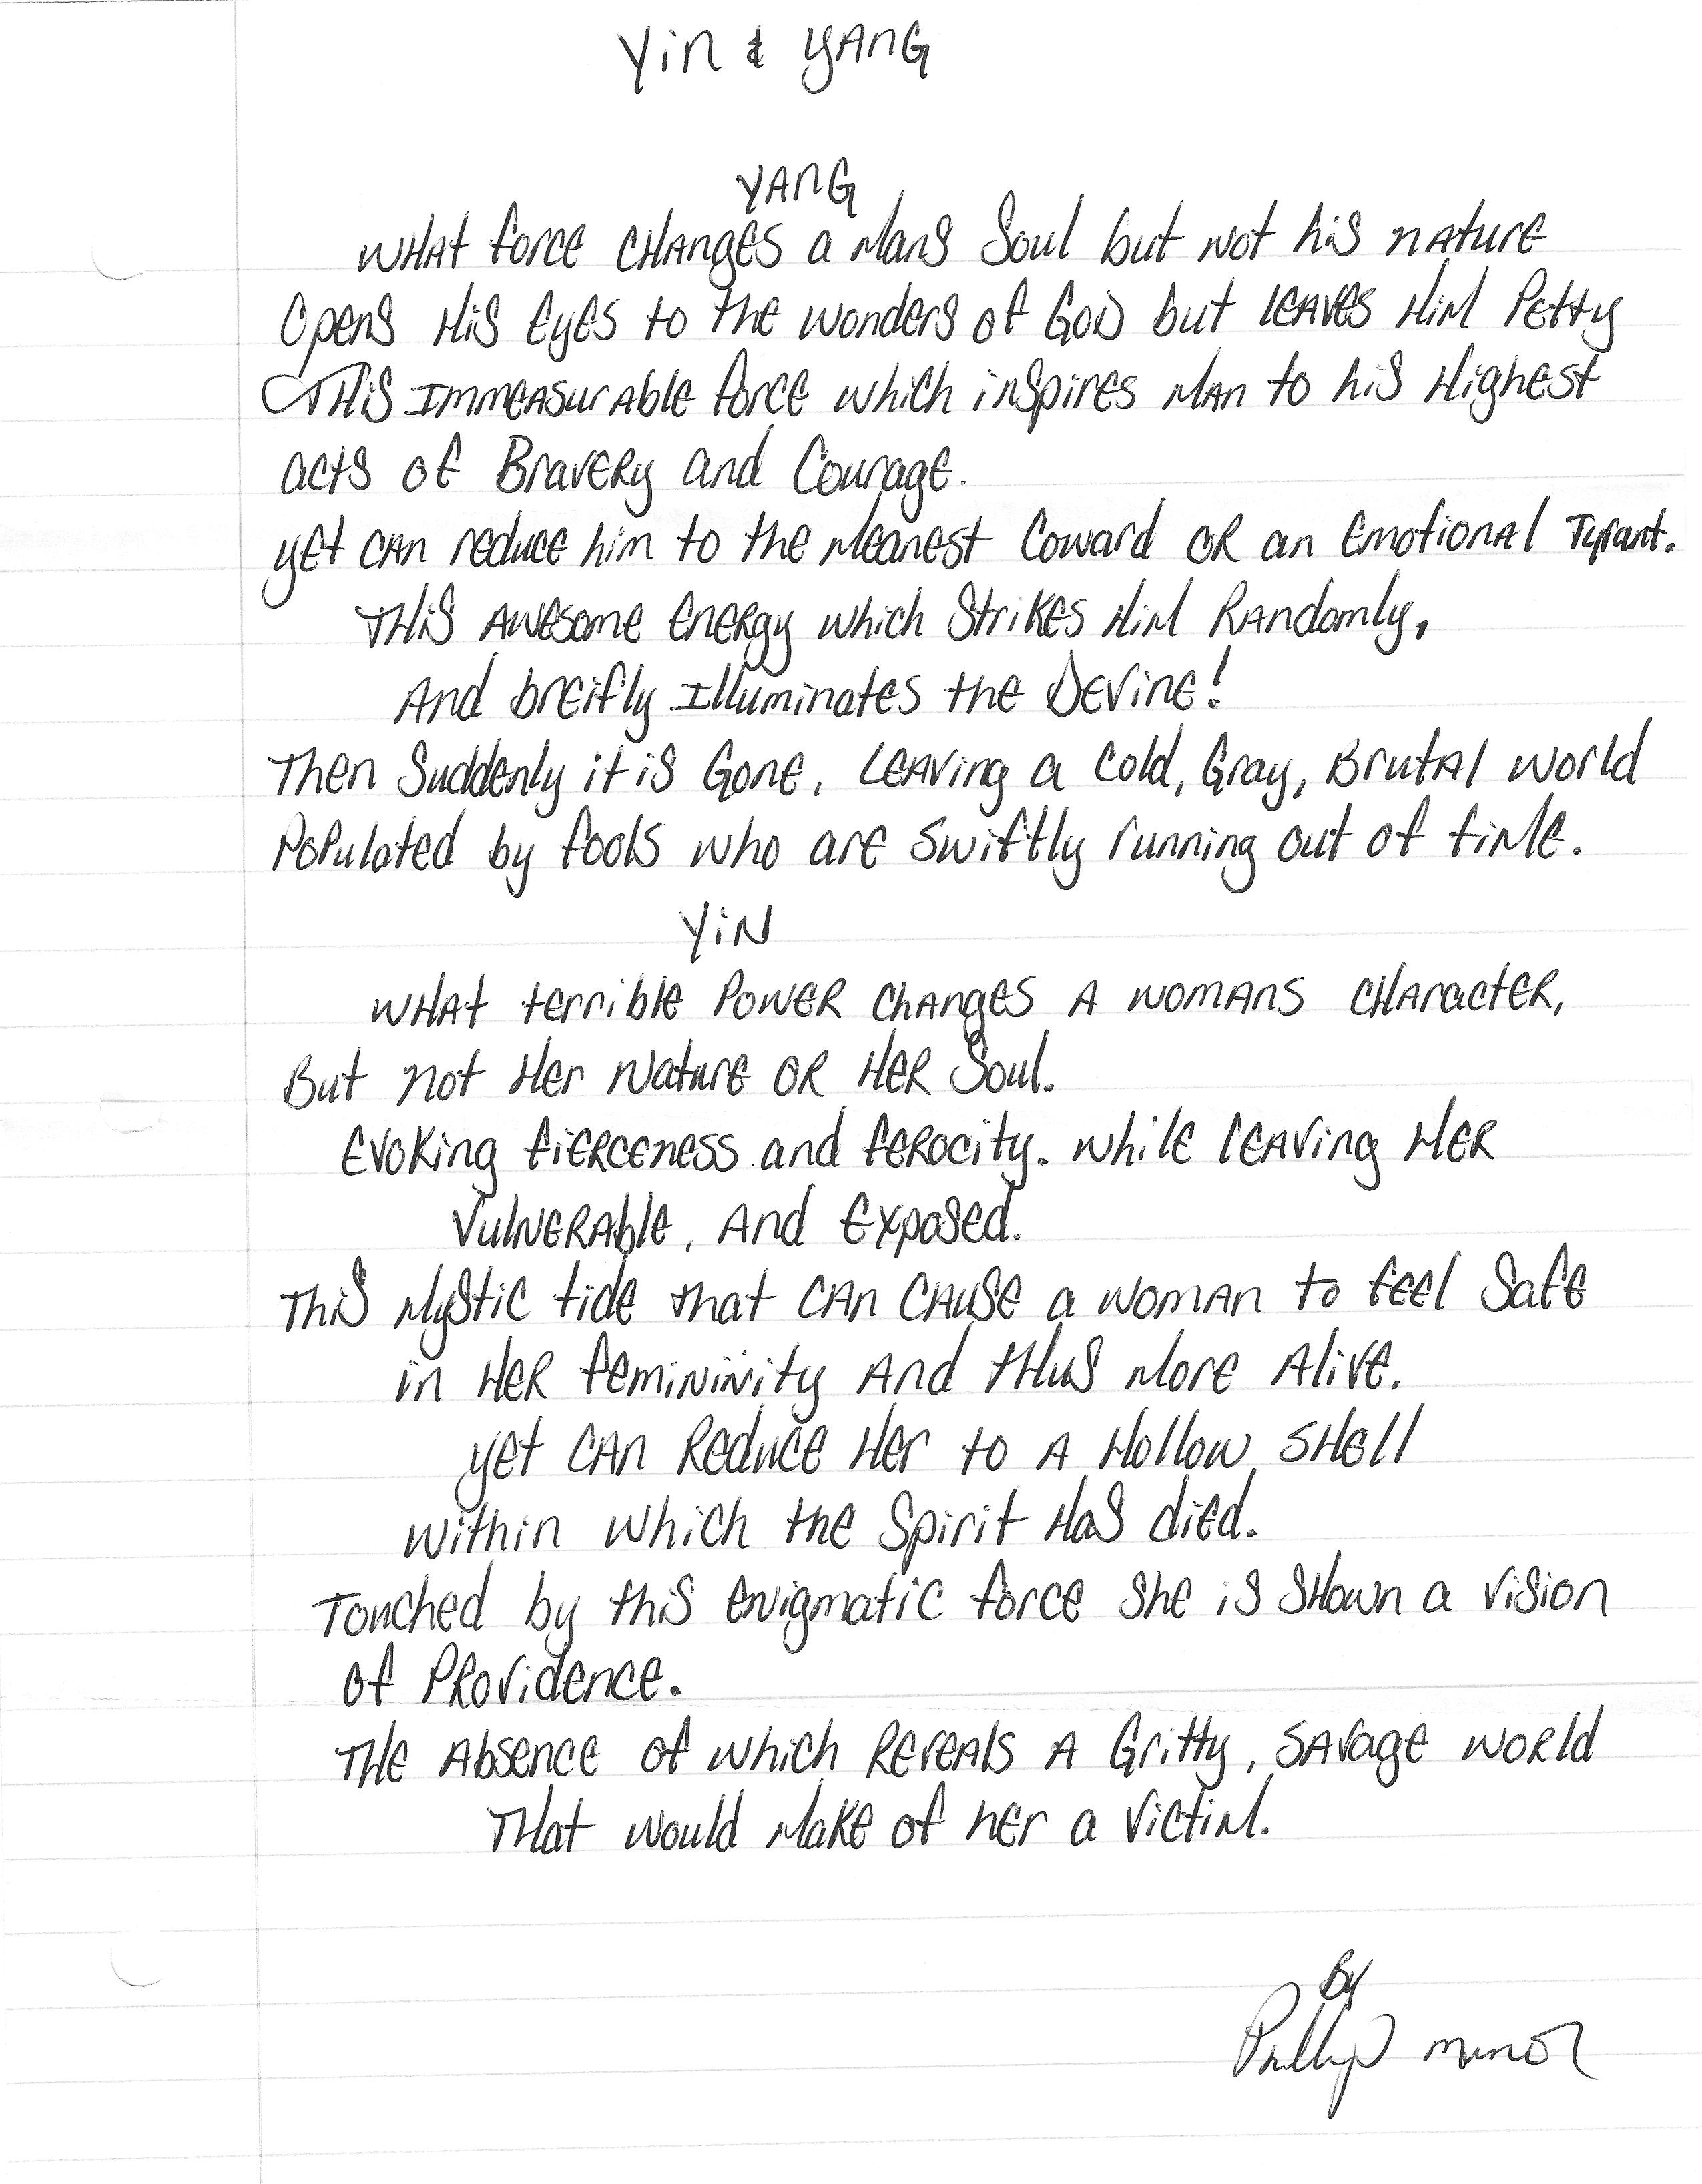 Yin & Yang
Yang
What force changes a mans soul but not his nature
Opens his eyes to the wonders of God but leaves him petty
This immeasurable force which inspires man to his highest
acts of Bravery and Courage.
yet can reduce him to the meanest coward or an emotional Tyrant.
This awesome energy which strikes him randomly,
And breifly Illuminates the Devine!
Then suddenly it is Gone, leaving a cold, Gray, Brutal world
Populated by fools who are swiftly running out of time.
Yin
What terrible power changes a womans character,
But not her nature or her soul.
Evoking fierceness and ferocity. while leaving her
Vulnerable, And Exposed.
This mystic tide that can cause a woman to feel safe
in her femininity and thus more alive.
yet can reduce her to a hollow shell
within which the spirit has died.
Touched by this enigmatic force she is shown a vision
of Providence.
The absence of which reveals a Gritty, savage world
That would make of her a victim.
By
Phillip Minor